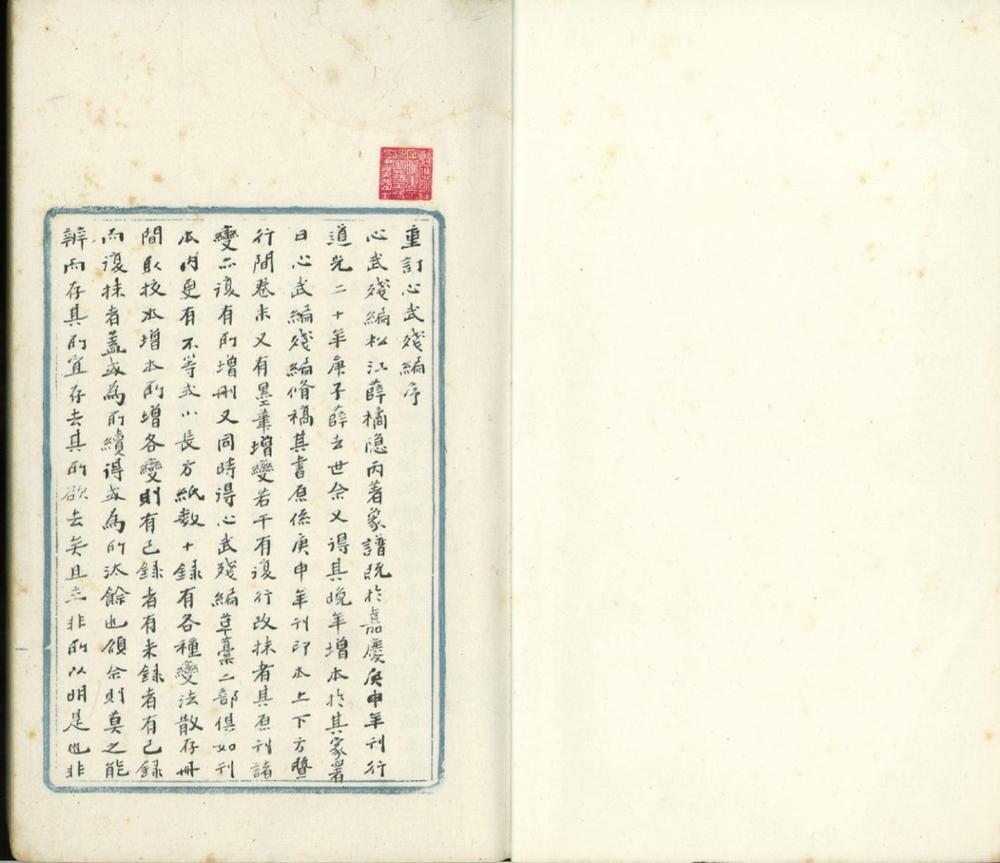 重訂心武殘編序
心武殘編松江薛橘隱丙著象譜既於嘉慶庚申年刊行
道光二十年庚子薛去世余又得其晚年增本於其家署
曰心武編殘編脩稿其書原係庚申年刊印本上下方暨
行間卷末又有墨筆增變若干有復行改抹者其原刊諸
變亦復有所增刪又同時得心武殘編草藁二部俱如刊
本內更有不等式小長方紙數十錄有各種變法散存冊
間取校本增本所增各變則有已錄者有未錄者有已錄
而復抹者蓋或為所續得或為所汰餘也顧余則莫之能
辨而存其所宜存去其所欲去矣且之非所以明是也非